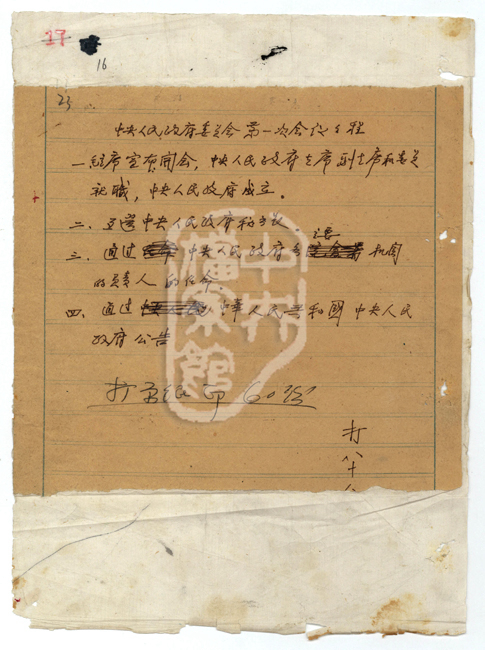 17
16
23
中央人民政府委員会第一次会议日程
一、主席宣布開会,中央人民政府主席副主席和委員
就職,中央人民政府成立。
二、互選中央人民政府秘书长。
主要
三、通过中央人民政府各机関
的负责人的任命。
四、通过中華人民共和國中央人民
政府公告
打字纸印60張
打
八
十
中共
檔案館